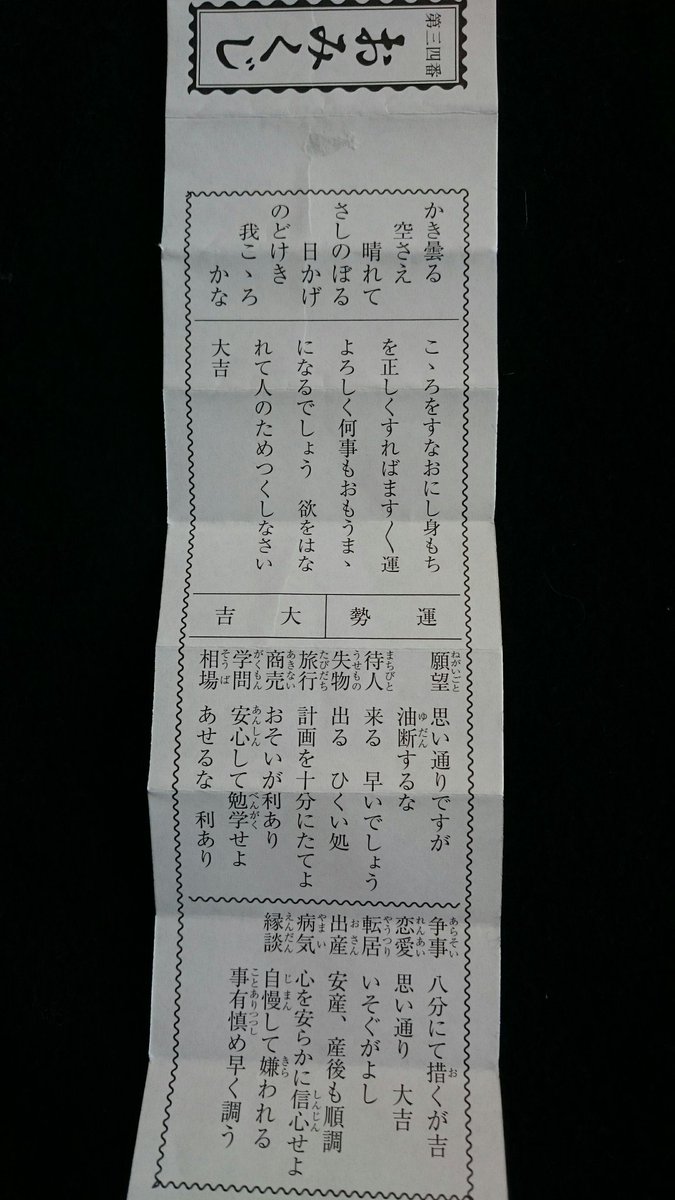 第三四番
おみくじ
かき曇る
空さえ
晴れて
さしのぼる
日かげ
のどけき
我こゝろ
かな
こゝろをすなおにし身もち
を正しくすればます〱運
よろしく何事もおもうまゝ
になるでしょう 欲をはな
れて人のためつくしなさい
大吉
運勢 大吉
願望 思い通りですが
油断するな
待人 来る 早いでしょう
失物 出る ひくい処
旅行 計画を十分にたてよ
商売 おそいが利あり
学問 安心して勉学せよ
相場 あせるな 利あり
争事 八分にて措くが吉
恋愛 思い通り 大吉
転居 いそぐがよし
出産 安産、産後も順調
病気 心を安らかに信心せよ
縁談 自慢して嫌われる
事有慎め早く調う